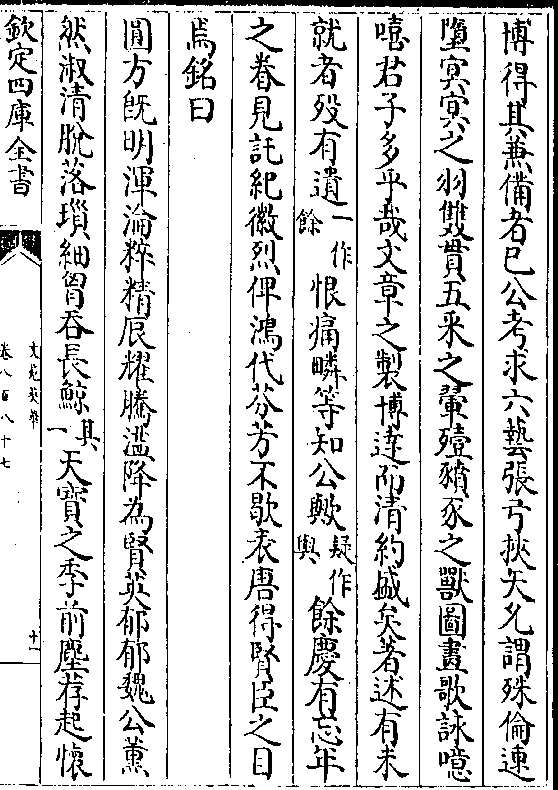 博得其兼備者已公考求六藝張弓挾矢允謂殊倫連
墮㝠㝠之羽雙貫五采之翬殪豶豕之獸圖畫歌詠噫
嘻君子多乎哉文章之製博達而清約盛矣著述有未
就者殁有遺一作餘恨痛疄等知公歟疑作與餘慶有忘年
之眷見託紀徽烈俾鴻代芬芳不歇表唐得賢臣之目
焉銘曰
圓方旣明渾淪粹精辰耀騰滥降為賢英郁郁魏公薰
然淑清脫落瑣細胷吞長鯨其一天寶之季前塵荐起懷
欽定四庫全書
文苑英華
卷八百八十七
十一